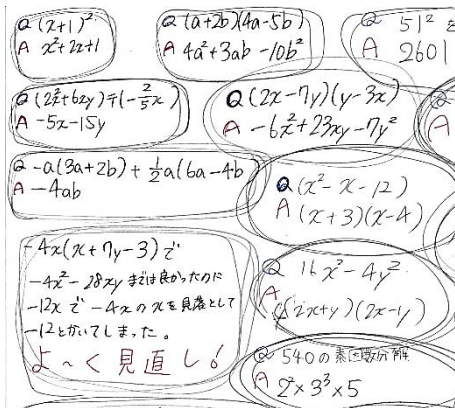 Q (x+1)²
A x²+2x+1
Q (a+2b)(4a-5b)
A 4a²+3ab-10b²
Q 51²を
A 2601
Q (2x²+6xy)÷(-2/5x)
A -5x-15y
Q (2x-7y)(y-3x)
A -6x²+23xy-7y²
A
Q -a(3a+2b)+1/2a(6a-4b
A -4ab
Q (x²-x-12)
A (x+3)(x-4)
-4x(x+7y-3)で
-4x²-28xyまでは良かったのに
-12xで-4xのxを見落として
-12とかいてしまった。
よ〜く見直し!
Q 16x²-4y²
A 4(2x+y)(2x-y)
Q 540の素因数分解
A 2²×3³×5